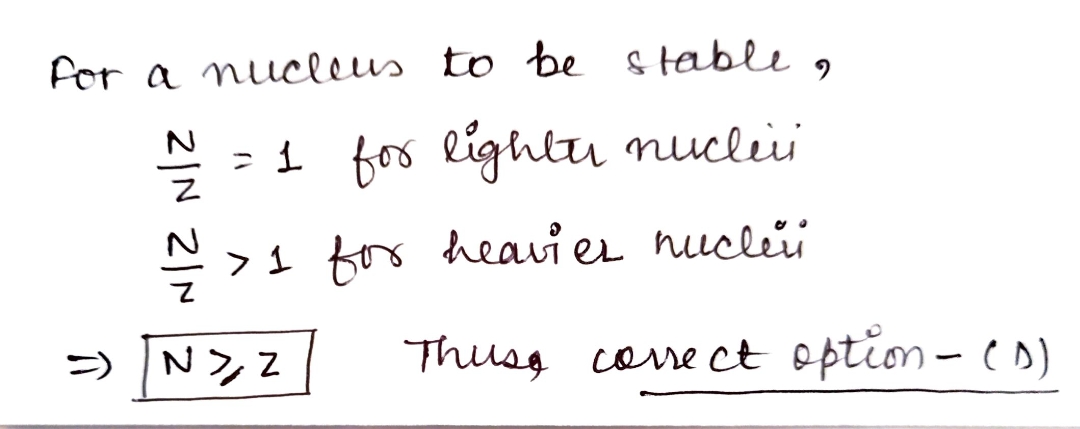 for a nucleus to be stable,
N/Z = 1 for lighter nucleii
N/Z > 1 for heavier nucleii
⇒ N ≥ Z Thus, correct option - (D)